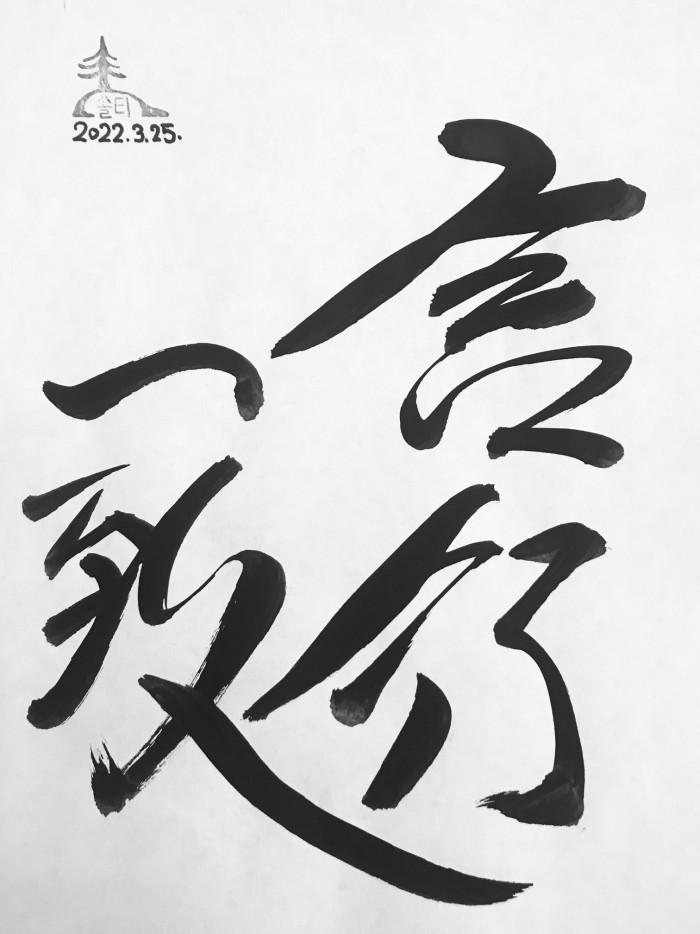 言行
一致
솔티
2022.3.25.